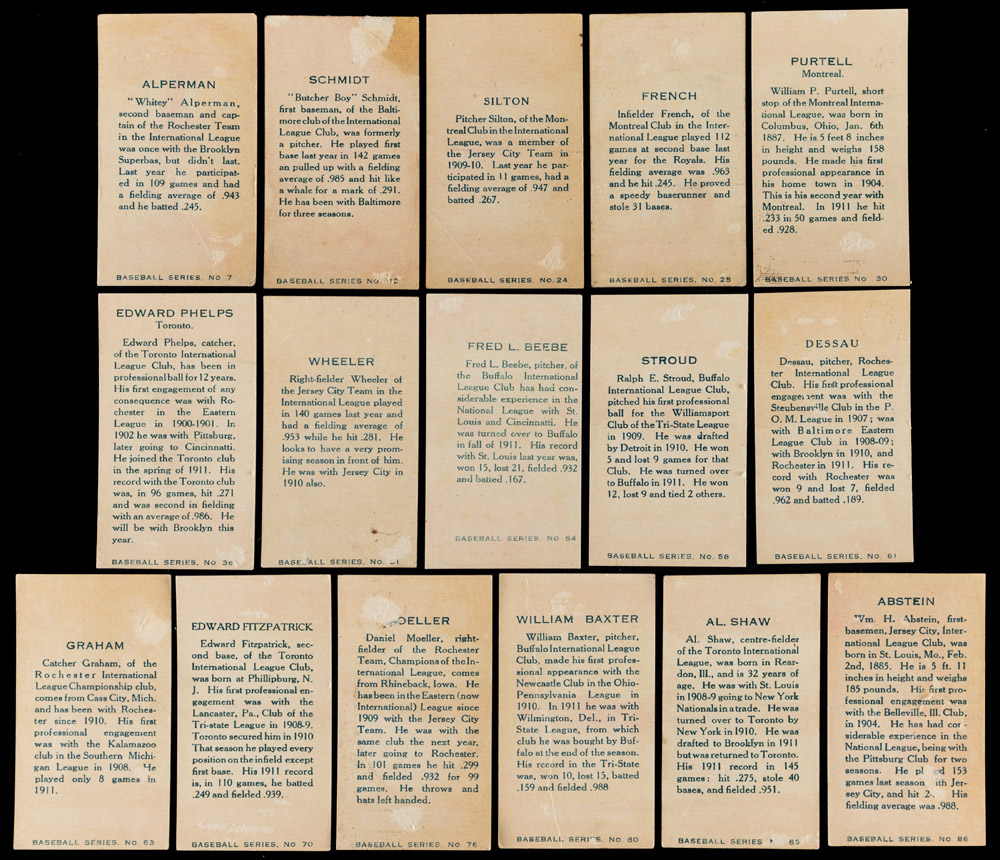 ALPERMAN
"Whitey" Alperman,
second baseman and cap-
tain of the Rochester Team
in the International League
was once with the Brooklyn
Superbas, but didn't last.
Last year he participat-
ed in 109 games and had
a fielding average of .943
and he batted .245.
BASEBALL SERIES, NO. 7
SCHMIDT
"Butcher Boy" Schmidt,
first baseman, of the Balti-
more club of the International
League Club, was formerly
a pitcher. He played first
base last year in 142 games
an pulled up with a fielding
average of .985 and hit like
a whale for a mark of .291.
He has been with Baltimore
for three seasons.
BASEBALL SERIES NO.
SILTON
Pitcher Silton, of the Mon-
treal Club in the International
League, was a member of
the Jersey City Team in
1909-10. Last year he par-
ticipated in 11 games, had a
fielding average of .947 and
batted .267.
BASEBALL SERIES, NO. 24
FRENCH
Infielder French, of the
Montreal Club in the Inter-
national League played 112
games at second base last
year for the Royals. His
fielding average was .963
and he hit .245. He proved
a speedy baserunner and
stole 31 bases.
BASEBALL SERIES, NO. 25
PURTELL
Montreal.
William P. Purtell, short
stop of the Montreal Interna-
tional League, was born in
Columbus, Ohio, Jan. 6th
1887. He is 5 feet 8 inches
in height and weighs 158
pounds. He made his first
professional appearance in
his home town in 1904.
This is his second year with
Montreal. In 1911 he hit
.233 in 50 games and field-
ed .928.
BASEBALL SERIES, NO. 30
EDWARD PHELPS
Toronto.
Edward Phelps, catcher,
of the Toronto International
League Club, has been in
professional ball for 12 years.
His first engagement of any
consequence was with Ro-
chester in the Eastern
League in 1900-1901. In
1902 he was with Pittsburg,
later going to Cincinnatti.
He joined the Toronto club
in the spring of 1911. His
record with the Toronto club
was, in 96 games, hit .271
and was second in fielding
with an average of .986. He
will be with Brooklyn this
year.
BASEBALL SERIES, NO 36
WHEELER
Right-fielder Wheeler of
the Jersey City Team in the
International League played
in 140 games last year and
had a fielding average of
.953 while he hit .281. He
looks to have a very prom-
ising season in front of him.
He was with Jersey City in
1910 also.
SERIES, NO.
FRED L. BEEBE
Fred L. Beebe, pitcher, of
the Buffalo International
League Club has had con-
siderable experience in the
National League with St.
Louis and Cincinnatti. He
was turned over to Buffalo
in fall of 1911. His record
with St. Louis last year was,
won 15, lost 21, fielded .932
and batted .167.
BASEBALL SERIES, NO 54
STROUD
Ralph E. Stroud, Buffalo
International League Club,
pitched his first professional
ball for the Williamsport
Club of the Tri-State League
in 1909. He was drafted
by Detroit in 1910. He won
5 and lost 9 games for that
Club. He was turned over
to Buffalo in 1911. He won
12, lost 9 and tied 2 others.
BASEBALL SERIES, NO. 58
DESSAU
Dessau, pitcher, Roches-
ter International League
Club. His first professional
engagement was with the
Steubensville Club in the P.
O. M. League in 1907; was
with Baltimore Eastern
League Club in 1908-09;
with Brooklyn in 1910, and
Rochester in 1911. His re-
cord with Rochester was
won 9 and lost 7, fielded
.962 and batted .189.
BASEBALL SERIES, NO. 61
GRAHAM
Catcher Graham, of the
Rochester International
League Championship club,
comes from Cass City, Mich.
and has been with Roches-
ter since 1910. His first
professional engagement
was with the Kalamazoo
club in the Southern Michi-
gan League in 1908. He
played only 8 games in
1911.
BASEBALL SERIES, NO 63
EDWARD FITZPATRICK
Edward Fitzpatrick, sec-
ond base, of the Toronto
International League Club,
was born at Phillipburg, N.
J. His first professional en-
gagement was with the
Lancaster, Pa., Club of the
Tri-state League in 1908-9.
Toronto secured him in 1910
That season he played every
position on the infield except
first base. His 1911 record
is, in 110 games, he batted
.249 and fielded .939.
BASEBALL SERIES, NO 70
MOELLER
Daniel Moeller, right-
fielder of the Rochester
Team, Champions of the In-
ternational League, comes
from Rhineback, Iowa. He
has been in the Eastern (now
International) League since
1909 with the Jersey City
Team. He was with the
same club the next year,
later going to Rochester.
In 101 games he hit .299
and fielded .932 for 99
games. He throws and
bats left handed.
BASEBALL SERIES, NO 76
WILLIAM BAXTER
William Baxter, pitcher,
Buffalo International League
Club, made his first profes-
sional appearance with the
Newcastle Club in the Ohio-
Pennsylvania League in
1910. In 1911 he was with
Wilmington, Del., in Tri-
State League, from which
club he was bought by Buf-
falo at the end of the season.
His record in the Tri-State
was, won 10, lost 15, batted
.159 and fielded .988
BASEBALL SERIES, NO. 80
AL. SHAW
Al. Shaw, centre-fielder
of the Toronto International
League, was born in Rear-
don, Ill., and is 32 years of
age. He was with St. Louis
in 1908-9 going to New York
Nationals in a trade. He was
turned over to Toronto by
New York in 1910. He was
drafted to Brooklyn in 1911
but was returned to Toronto.
His 1911 record in 145
games: hit .275, stole 40
bases, and fielded .951.
BASEBALL SERIES 85
ABSTEIN
Wm. H. Abstein, first-
basemen, Jersey City, Inter-
national League Club, was
born in St. Louis, Mo., Feb.
2nd, 1885. He is 5 ft. 11
inches in height and weighs
185 pounds. His first pro-
fessional engagement was
with the Belleville, Ill. Club,
in 1904. He has had con-
siderable experience in the
National League, being with
the Pittsburg Club for two
seasons. He played 153
games last season with Jer-
sey City, and hit His
fielding average was .988.
BASEBALL SERIES, NO 86